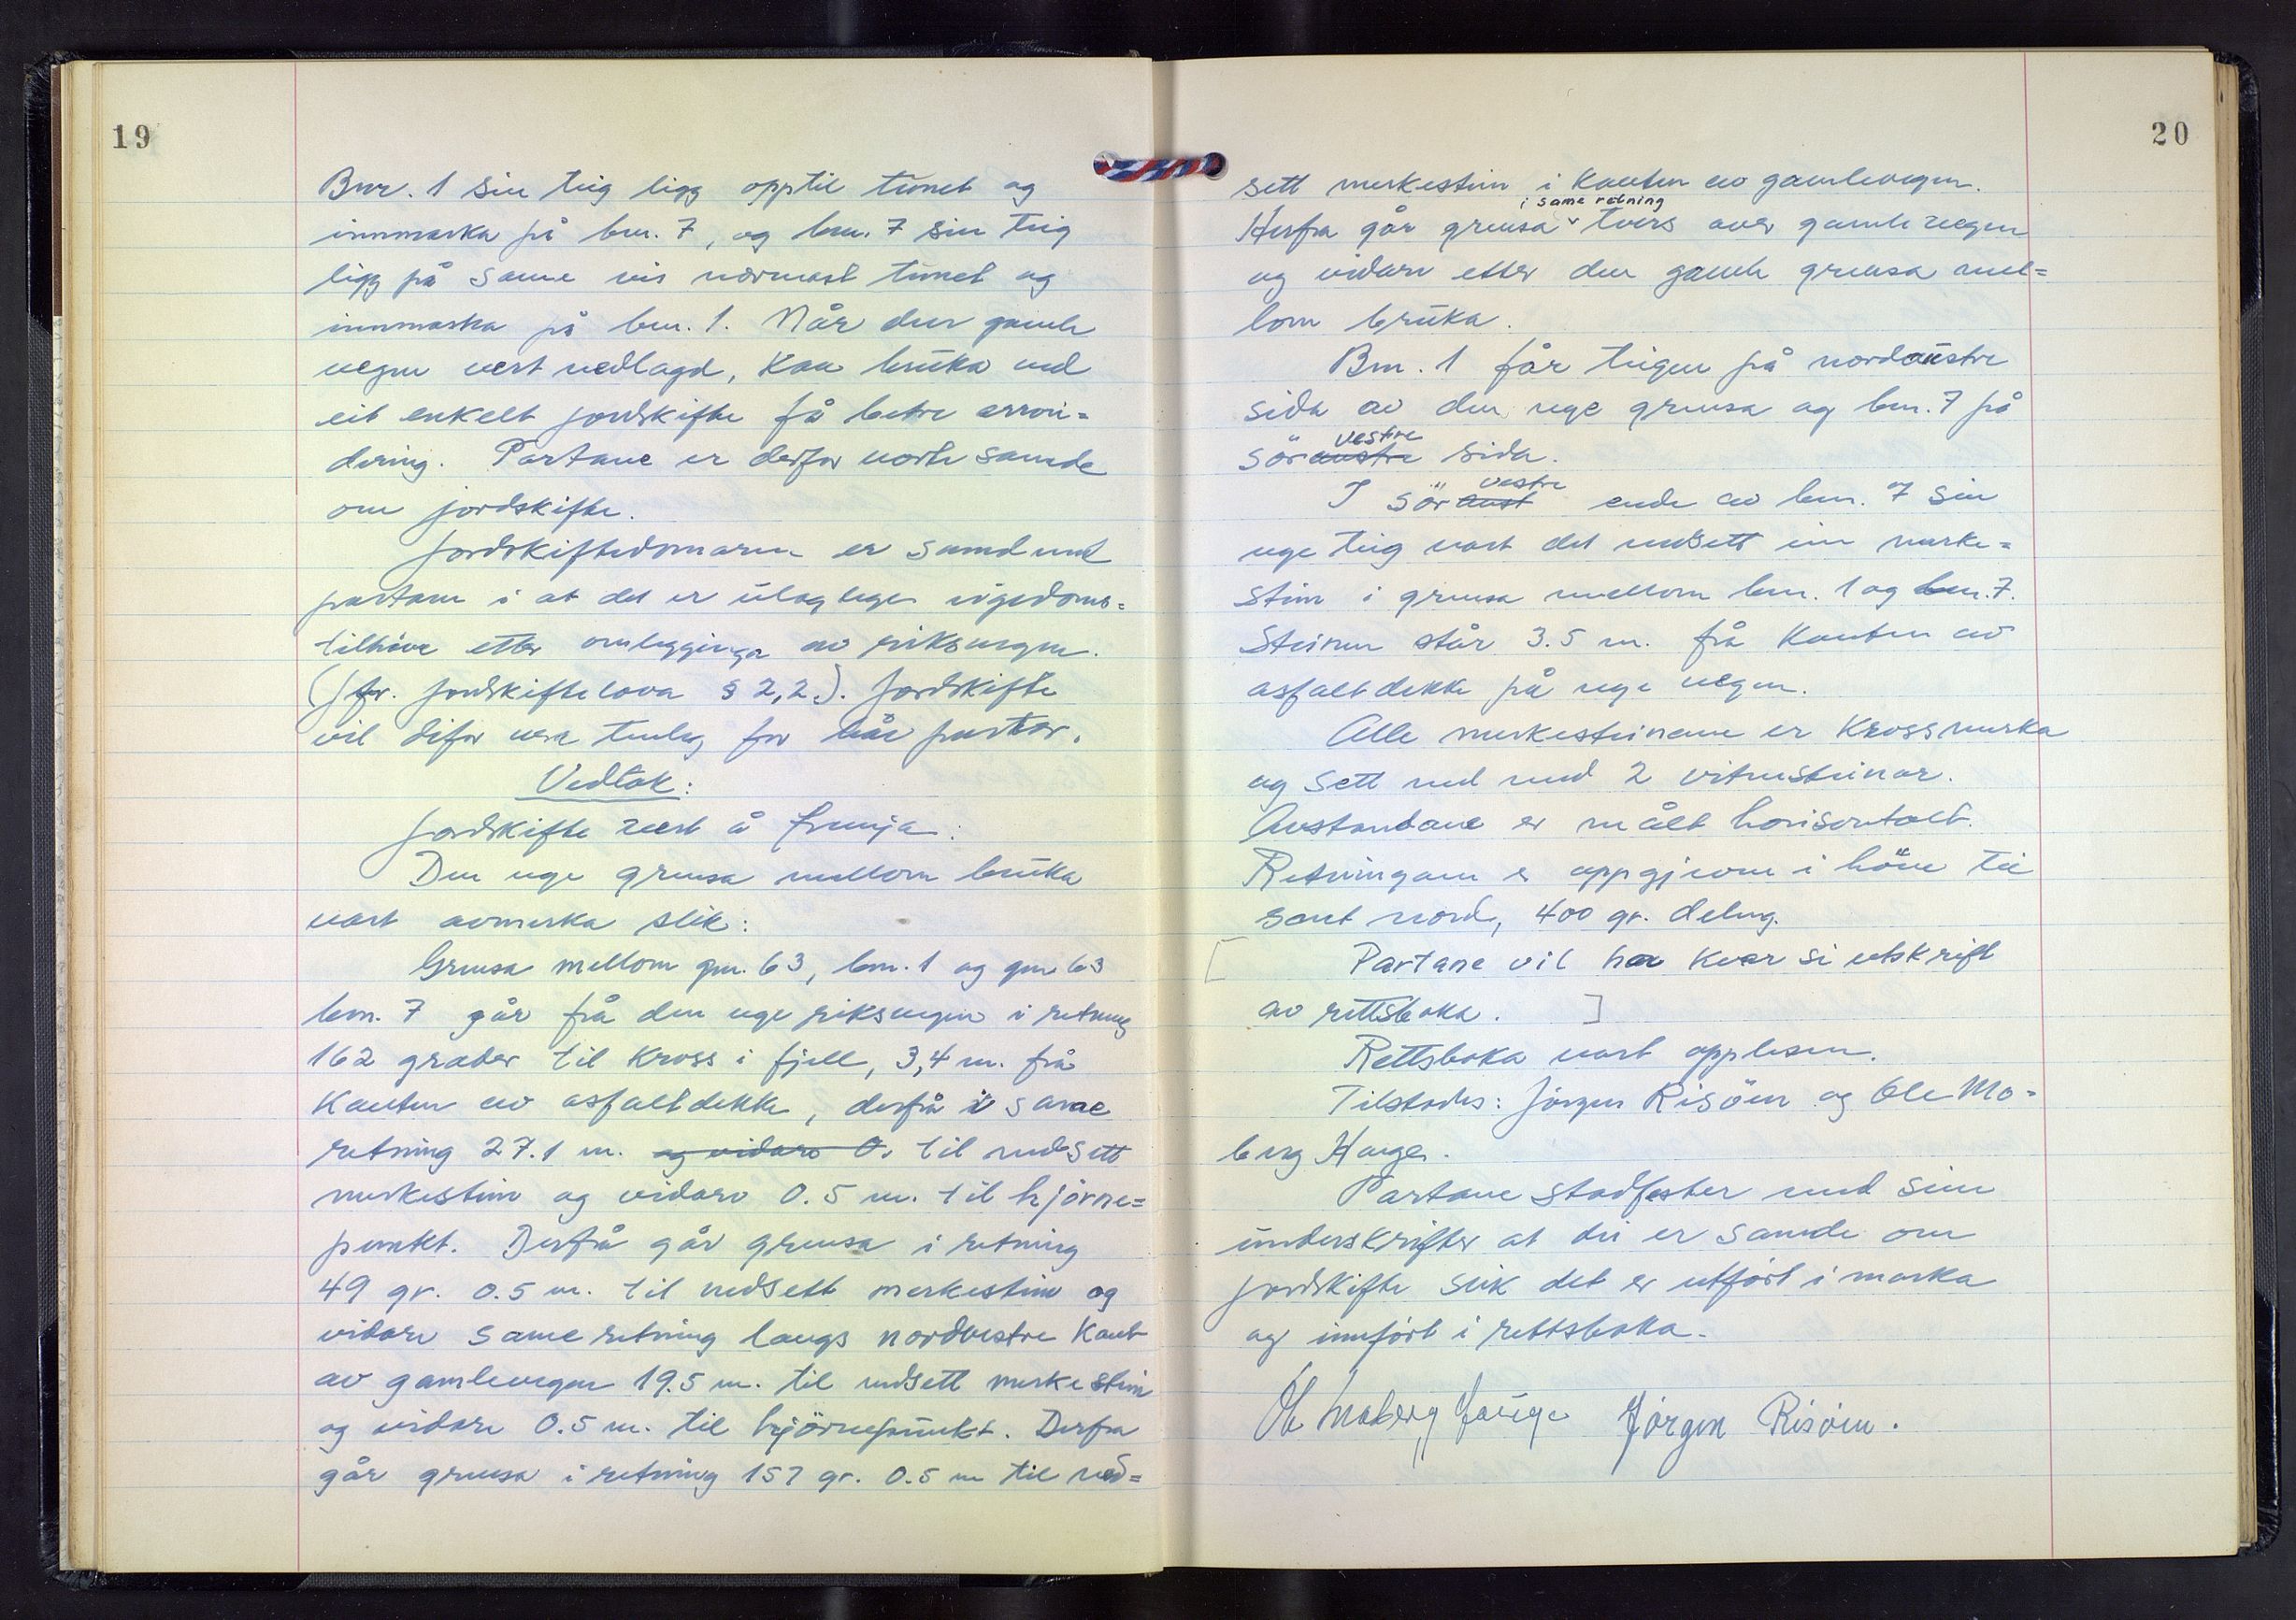 19
Bnr. 1 sin teig ligg opptil tunet og
innmarka på bnr. 7, og bnr. 7 sin teig
ligg på same vis nærmast tunet og
innmarka på bnr. 1. Når den gamle
vegen vert nedlagd, kan bruka ved
eit enkelt jordskifte få betre arron=
dering. Partane er derfor vorte samde
om jordskifte.
Jordskiftedomaren er samd med
partane i at det er ulaglege eigedoms=
tilhöve etter omlegginga av riksvegen.
(jfr. jordskiftelova § 2,2.). Jordskifte
vil difor vera tenleg for båe partar.
Vedtak:
Jordskifte vert å fremja:
Den nye grensa mellom bruka
vart avmerka slik:
Grensa mellom gnr. 63, bnr. 1 og gnr 63
bnr. 7 går frå den nye riksvegen i retning
162 grader til kross i fjell, 3,4 m. frå
kanten av asfaltdekke, derfrå i same
retning 27.1 m. og vidare 0. til nedsett
merkestein og vidare 0.5 m. til hjörne=
punkt. Derfrå går grensa i retning
49 gr. 0.5 m. til nedsett merkestein og
vidare same retning langs nordvestre kant
av gamlevegen 19.5 m. til nedsett merkestein
og vidare 0.5 m. til hjörnepunkt. Derfra
går grensa i retning 157 gr. 0.5 m til ned=
20
sett merkestein i kanten av gamlevegen.
i same retning
Herfra går grensa tvers over gamlevegen
og vidare etter den gamle grensa mel=
lom bruka.
Bnr. 1 får teigen på nordaustre
sida av den nye grensa og bnr. 7 på
vestre
söraustre sida.
vestre
I söraust ende av bnr. 7 sin
nye teig vart det nedsett ein merke=
stein i grensa mellom bnr. 1 og bnr. 7.
Steinen står 3.5 m. frå kanten av
asfaltdekke på nye vegen.
Alle merkesteinane er krossmerka
og sett ned med 2 vitnesteinar.
Avstandane er målt horisontalt.
Retningane er oppgjevne i höve til
sant nord, 400 gr. deling.
[ Partane vil ha kvar si utskrift
av rettsboka. ]
Rettsboka vart opplesen.
Tilstades: Jörgen Risöen og Ole Mo=
berg Hauge.
Partane stadfester med sine
underskrifter at dei er samde om
jordskifte slik det er utfört i marka
og innfört i rettsboka.
Ole Moberg Hauge Jörgen Risöen.